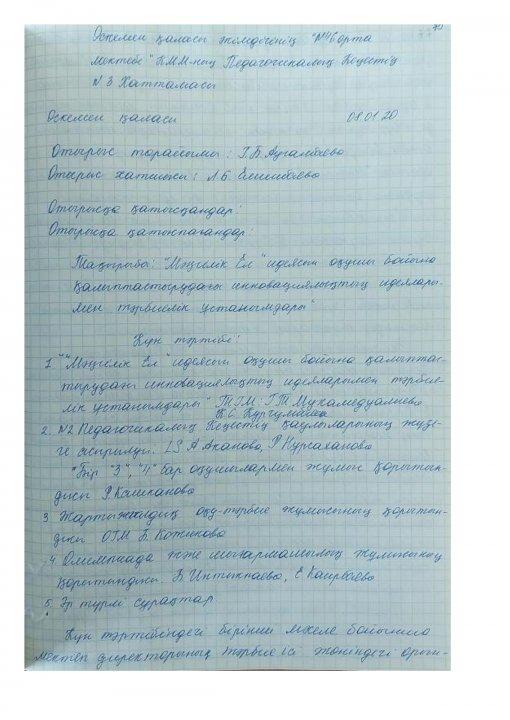 Өскемен қаласы әкімдігінің "№46 орта
мектебі" КММ-ның Педагогикалық Кеңестің
№ 3 Хаттамасы
Өскемен қаласы 08.01.20
Отырыс төрайымы: Г.Б.
Отырыс хатшысы: Л.Б
Отырысқа қатысқандар:
Отырысқа қатыспағандар:
Тақырыбы: "Мәңгілік Ел" идеясын оқушы бойына
қалыптастырудағы инновациялықтың идеялары-
мен тәрбиелік ұстанымдары"
Күн тәртібі:
1 "Мәңгілік Ел" идеясын оқушы бойына қалыптас-
тырудағы инновациялықтың идеяларымен тәрбие-
лік ұстанымдары" Г.Т Мухамедуалиева
2. №2 Педагогикалық Кеңестің қаулыларының жүзе-
ге асырылуы. А Аканова, Р Нургаханова
"Бір "3", "4" бар оқушылармен жұмыс қорытын-
дысы Р.
3 Жартыжылдық оқу-тәрбие жұмысының қорытын-
дысы
4 Олимпиада және шығармашылық жұмысының
қорытындысы. Б Интыкпаева, Е Каирбаева
5. Әр түрлі сұрақтар
Күн тәртібіндегі бірінші мәселе бойынша
мектеп директорының тәрбие ісі жөніндегі орын-